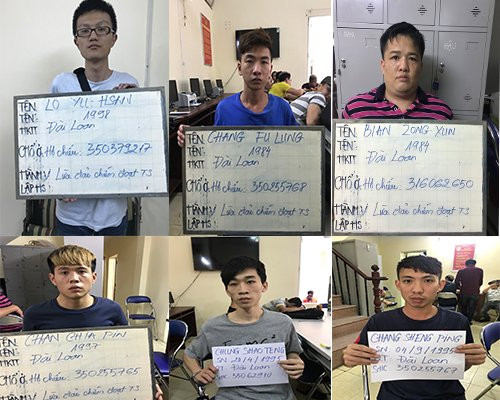 TÊN: LO YU-HSAN
TÊN: 1998
HKTT Đài Loan
CHỖ Ở: Hộ chiếu: 350379217
HÀNH VI Lừa đảo chiếm đoạt TS
LẬP HS:
TÊN: CHANG FU LUNG
TÊN: 1984
HKTT Đài Loan
CHỖ Ở: Hộ chiếu: 350255768
HÀNH VI Lừa đảo chiếm đoạt TS
LẬP HS:
TÊN: BIAN ZONG XUN
TÊN: 1984
HKTT Đài Loan
CHỖ Ở: Hộ chiếu: 316062650
HÀNH VI Lừa đảo chiếm đoạt TS
LẬP HS:
TÊN: CHAN CHIA PIN
TÊN: 1997
Đài Loan
CHỖ Ở: Hộ chiếu: 350255765
HÀNH VI Lừa đảo chiếm đoạt TS
CHUNG SHAO TENG
1995
Đài Loan
CHANG SHENG PING
SN: 04/9/1995
Đài Loan
SHC 350255767